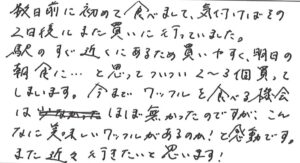 数日前に初めて食べまして、気付けばその
2日後にまた買いに行っていました。
駅のすぐ近くにあるため買いやすく、明日の
朝食に…と思ってついつい2〜3個買って
しまいます。今までワッフルを食べる機会
は ほぼ無かったのですが、こん
なに美味しいワッフルがあるのか!と感動です。
また近々行きたいと思います!